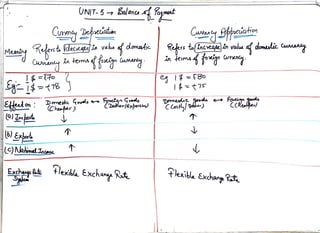 UNIT-5 → Balance of Payment
Currency Depreciation
Currency Appreciation
Meaning Refers to decrease in value of domestic
currency in terms of foreign currency.
Refers to increase in value of domestic currency
in terms of foreign currency.
Eg:- 1$ = ₹70
1$ = ₹78
eg 1$ = ₹80
1$ = ₹75
Effect on : Domestic Goods ↔ Foreign Goods
(Cheaper)
Domestic goods ↔ Foreign goods
(Cheaper)
(a) Imports ↓ ↑
(b) Exports ↑ ↓
(c) National Income ↑ ↓
Exchange Rate
System
Flexible Exchange Rate
Flexible Exchange Rate